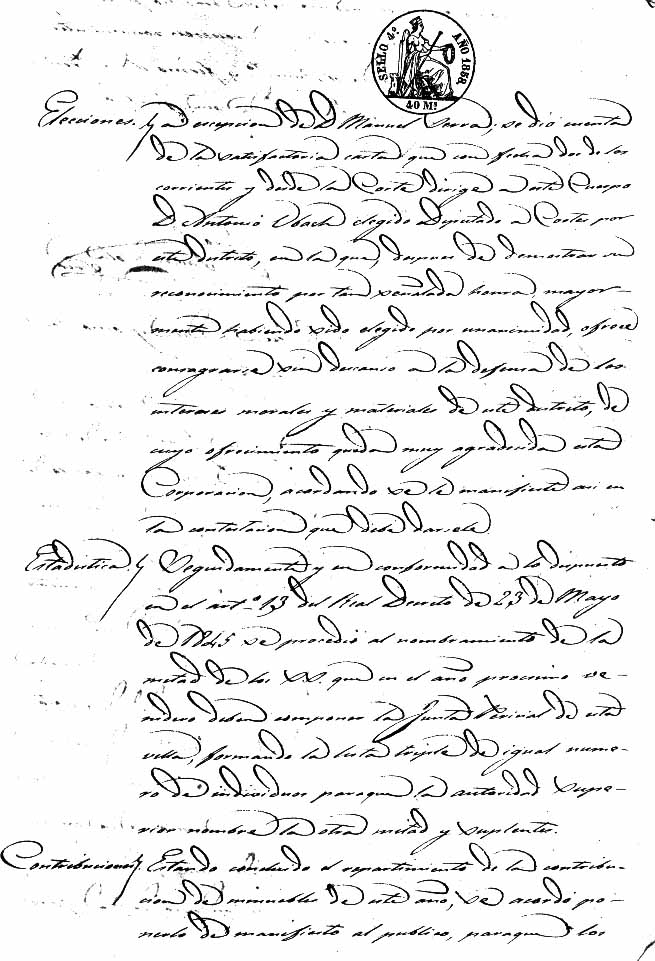 SELLO 4º AÑO 1858.
40 Ms.
Elecciones. Y a excepcion de D Manuel Serra, se dió cuenta
de la satisfactoria carta que con fecha dos de los
corrientes y desde la Corte dirige a este Cuerpo
D Antonio Ubach elegido Diputado a Cortes por
este distrito, en la que, despues de demostrar su
reconocimiento por tan señalada honra, mayor-
mente habiendo sido elegido por unanimidad, ofrece
consagrarse sin descanso a la defensa de los
intereses morales y materiales de este distrito, de
cuyo ofrecimiento queda muy agradecida esta
Corporacion, acordando se le manifieste asi en
la contestacion que debe darsele
Estadistica. Seguidamente y en conformidad a lo dispuesto
en el artº 13 del Real Decreto de 23 de Mayo
de 1845 se procedió al nombramiento de la
mitad de los SS. que en el año procsimo ve-
nidero deben componer la Junta Pericial de esta
villa, formando la lista triple de igual nume-
ro de individuos paraque la autoridad supe-
rior nombre la otra mitad y suplentes.
Contribuciones. Estando concluido el repartimiento de la contribu-
cion de inmuebles de este año, se acordó po-
nerlo de manifiesto al publico, paraque los